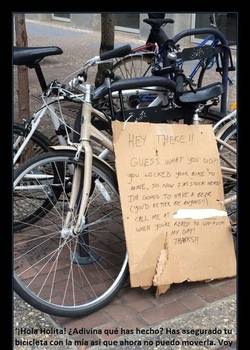 HEY THERE!!
GUESS WHAT YOU DID?
YOU LOCKED YOUR BIKE TO
MINE, SO NOW I'M STUCK HERE!
I'M GOING TO HAVE A BEER
(YOU'D BETTER BE BUYING!!)
CALL ME AT
WHEN YOU'RE READY TO
MY DAY!
THANKS!!
¡Hola Holita! ¿Adivina qué has hecho? Has asegurado tu
bicicleta con la mía así que ahora no puedo moverla. Voy